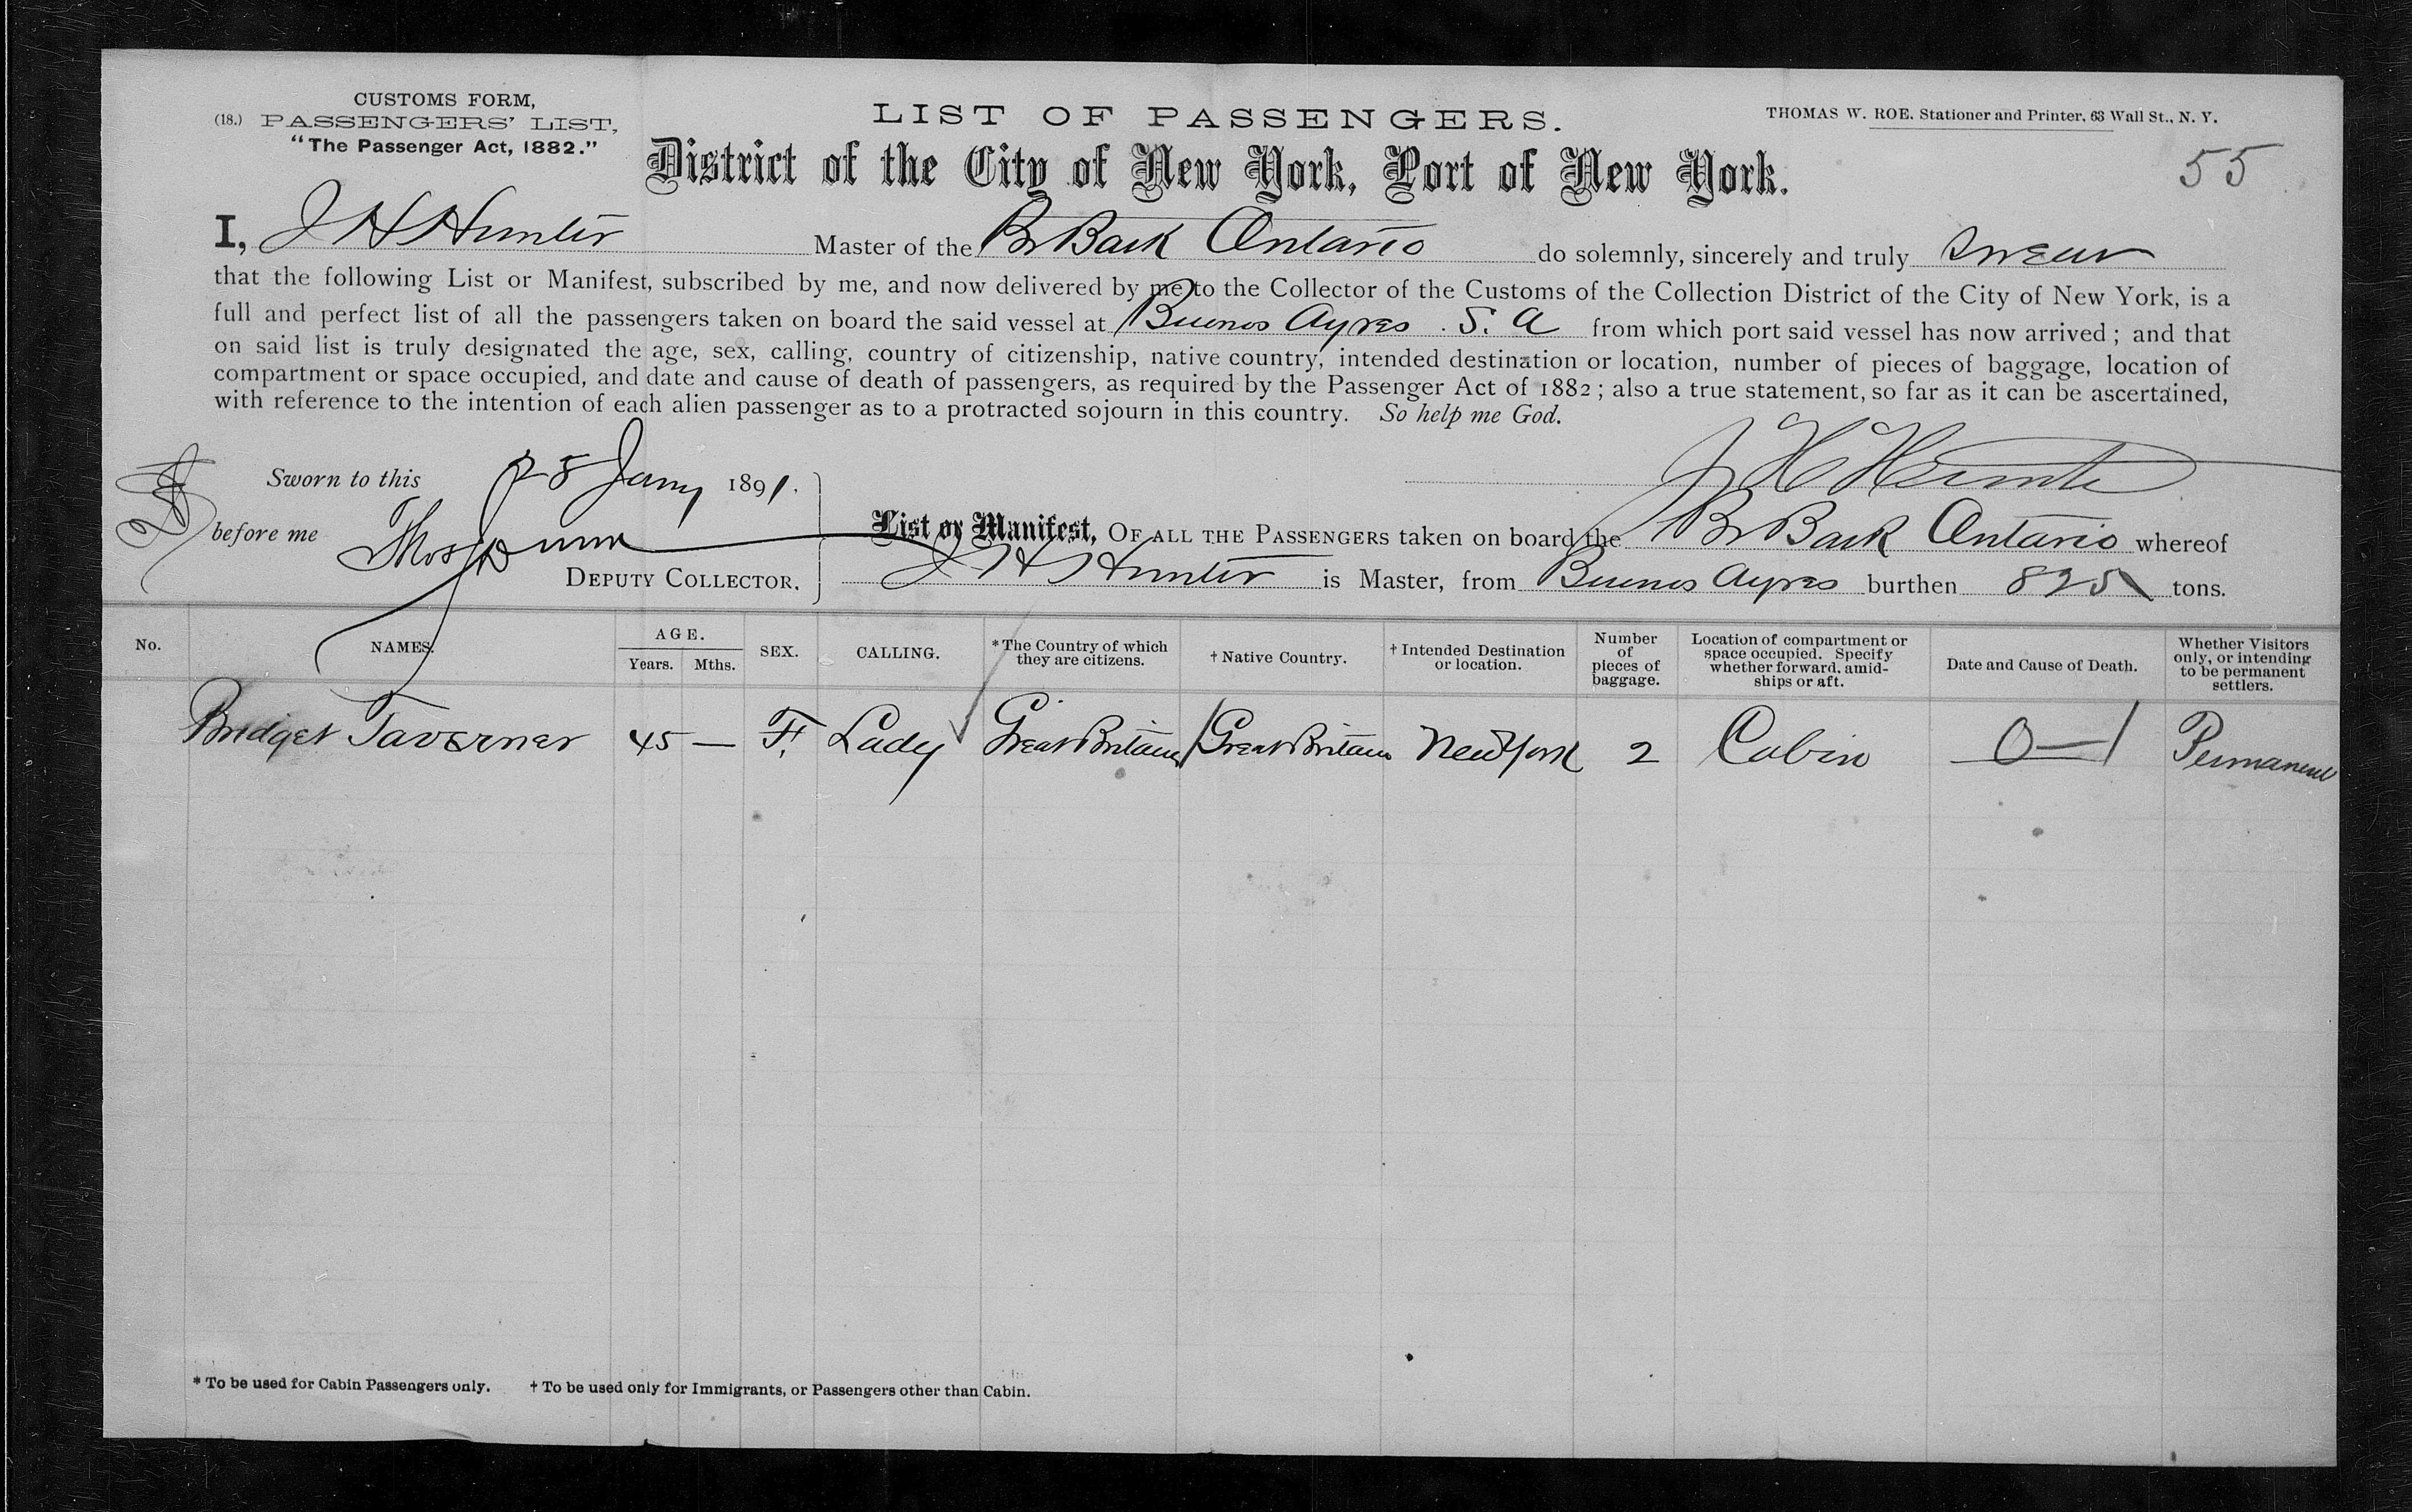 CUSTOMS FORM,
(18.) PASSENGERS' LIST,
"The Passenger Act, 1882."
LIST OF PASSENGERS.
THOMAS W. ROE. Stationer and Printer, 63 Wall St., N. Y.
District of the City of New York, Port of New York.
55
I, J H Hunter Master of the Br Bark Ontario do solemnly, sincerely and truly swear
that the following List or Manifest, subscribed by me, and now delivered by me to the Collector of the Customs of the Collection District of the City of New York, is a
full and perfect list of all the passengers taken on board the said vessel at Buenos Ayres . S. A from which port said vessel has now arrived ; and that
on said list is truly designated the age, sex, calling, country of citizenship, native country, intended destination or location, number of pieces of baggage, location of
compartment or space occupied, and date and cause of death of passengers, as required by the Passenger Act of 1882 ; also a true statement, so far as it can be ascertained,
with reference to the intention of each alien passenger as to a protracted sojourn in this country. So help me God.
J H Hunter
Sworn to this 28 Jany 1891.
before me Thos Dunn
DEPUTY COLLECTOR.
List or Manifest, OF ALL THE PASSENGERS taken on board the Br Bark Ontario whereof
J H Hunter is Master, from Buenos Ayres burthen 825 tons.
No. NAMES. AGE. Years. Mths. SEX. CALLING. * The Country of which they are citizens. † Native Country. † Intended Destination or location. Number of pieces of baggage. Location of compartment or space occupied. Specify whether forward, amidships or aft. Date and Cause of Death. Whether Visitors only, or intending to be permanent settlers.
Bridget Taverner 45 — F. Lady Great Britain Great Britain New York 2 Cabin 0— Permanent
* To be used for Cabin Passengers only. † To be used only for Immigrants, or Passengers other than Cabin.